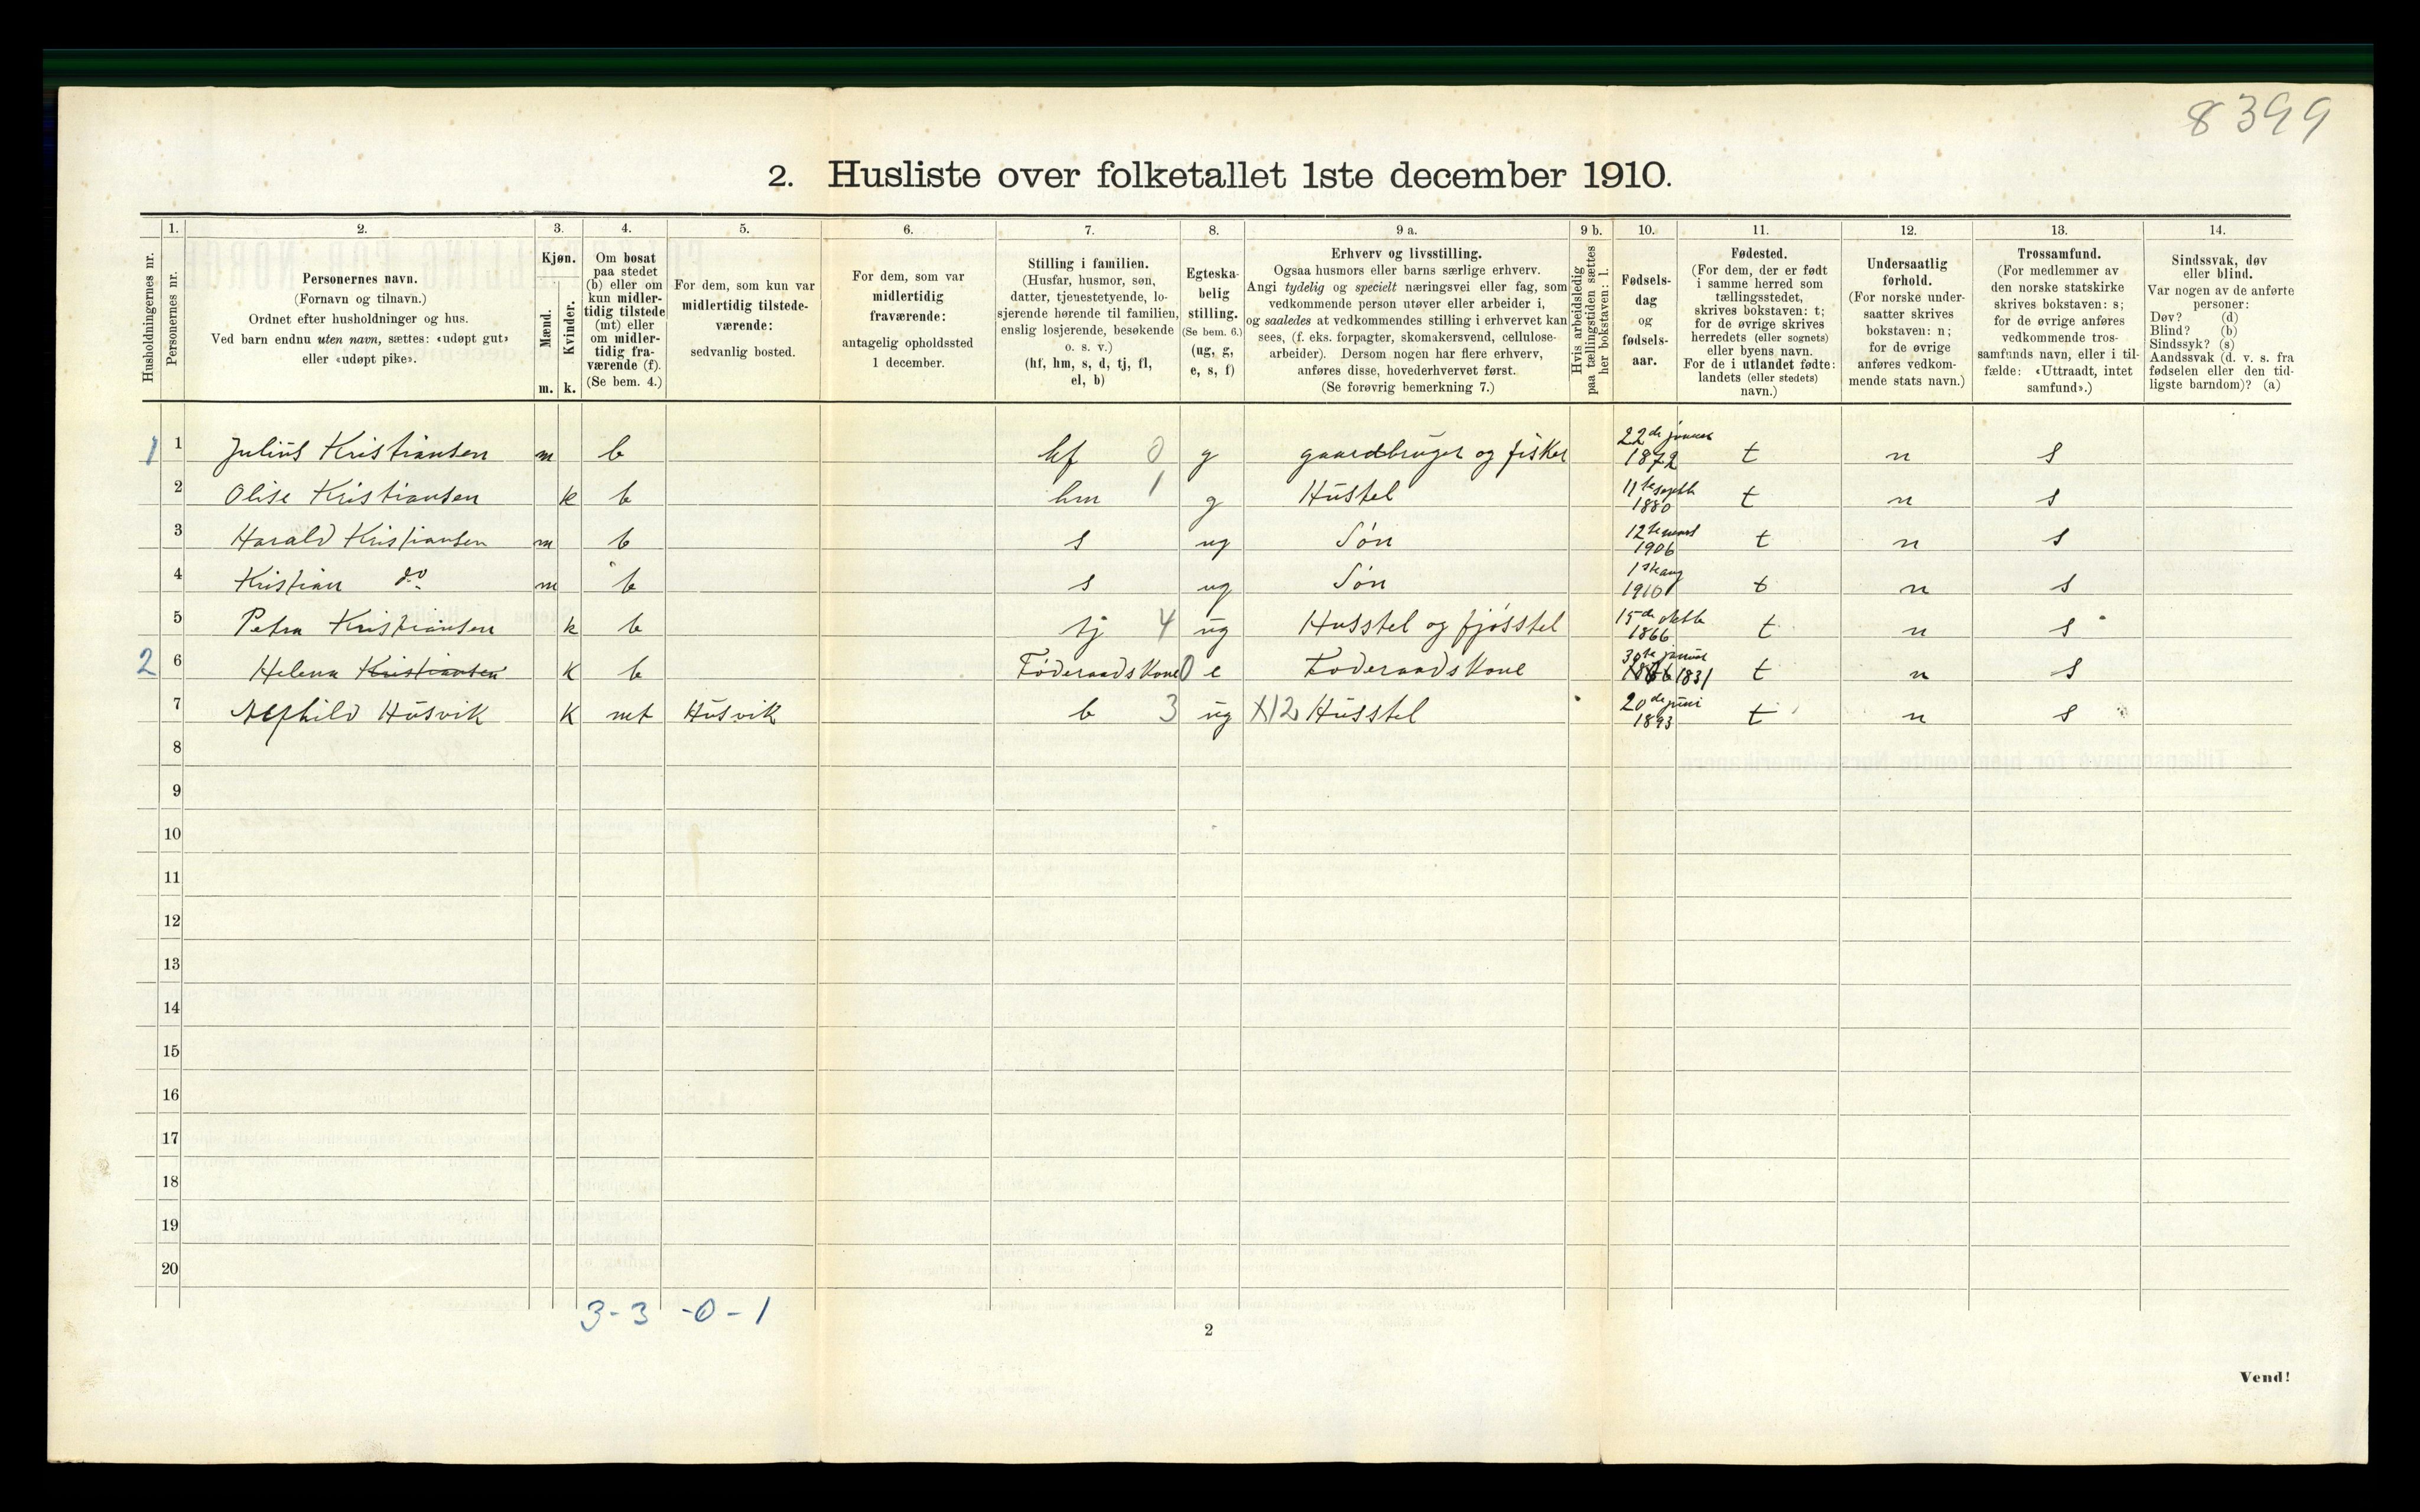 8399
2. Husliste over folketallet 1ste december 1910.
Husholdningernes nr.
1.
Personernes nr.
2.
Personernes navn.
(Fornavn og tilnavn.)
Ordnet efter husholdninger og hus.
Ved barn endnu uten navn, sættes: «udøpt gut»
eller «udøpt pike».
3.
Kjøn.
Mænd.
m.
Kvinder.
k.
4.
Om bosat
paa stedet
(b) eller om
kun midler-
tidig tilstede
(mt) eller
om midler-
tidig fra-
værende (f).
(Se bem. 4.)
5.
For dem, som kun var
midlertidig tilstede-
værende:
sedvanlig bosted.
6.
For dem, som var
midlertidig
fraværende:
antagelig opholdssted
1 december.
7.
Stilling i familien.
(Husfar, husmor, søn,
datter, tjenestetyende, lo-
sjerende hørende til familien,
enslig losjerende, besøkende
o. s. v.)
(hf, hm, s, d, tj, fl,
el, b)
8.
Egteska-
belig
stilling.
(Se bem. 6.)
(ug, g,
e, s, f)
9 a.
Erhverv og livsstilling.
Ogsaa husmors eller barns særlige erhverv.
Angi tydelig og specielt næringsvei eller fag, som
vedkommende person utøver eller arbeider i,
og saaledes at vedkommendes stilling i erhvervet kan
sees, (f. eks. forpagter, skomakersvend, cellulose-
arbeider). Dersom nogen har flere erhverv,
anføres disse, hovederhvervet først.
(Se forøvrig bemerkning 7.)
9 b.
Hvis arbeidsledig
paa tællingstiden sættes
her bokstaven: l.
10.
Fødsels-
dag
og
fødsels-
aar.
11.
Fødested.
(For dem, der er født
i samme herred som
tællingsstedet,
skrives bokstaven: t;
for de øvrige skrives
herredets (eller sognets)
eller byens navn.
For de i utlandet fødte:
landets (eller stedets)
navn.)
12.
Undersaatlig
forhold.
(For norske under-
saatter skrives
bokstaven: n;
for de øvrige
anføres vedkom-
mende stats navn.)
13.
Trossamfund.
(For medlemmer av
den norske statskirke
skrives bokstaven: s;
for de øvrige anføres
vedkommende tros-
samfunds navn, eller i til-
fælde: «Uttraadt, intet
samfund».)
14.
Sindssvak, døv
eller blind.
Var nogen av de anførte
personer:
Døv? (d)
Blind? (b)
Sindssyk? (s)
Aandssvak (d. v. s. fra
fødselen eller den tid-
ligste barndom)? (a)
1 1 Julius Kristiansen m b hf 0 g gaardbruger og fisker 22de januar 1872 t n s
2 Olise Kristiansen k b hm 1 g Hustel 11te septb 1880 t n s
3 Harald Kristiansen m b s ug Søn 12te mars 1906 t n s
4 Kristian do m b s ug Søn 1ste aug 1910 t n s
5 Petra Kristiansen k b tj 4 ug Husstel og fjøsstel 15de oktb 1866 t n s
2 6 Helena Kristiansen k b Føderaadskone 0 e Føderaadskone 30te januar 1831 t n s
7 Alfhild Husvik k mt Husvik b 3 ug X12 Husstel 20de juni 1893 t n s
8
9
10
11
12
13
14
15
16
17
18
19
20
3-3 -0-1
2
Vend!